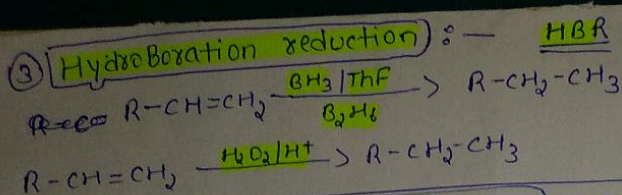 ③ HydroBoration reduction) :— HBR
R-CH=CH₂ —BH3/THF / B₂H₆—> R-CH₂-CH₃
R-CH=CH₂ —H₂O₂/H+—> R-CH₂-CH₃